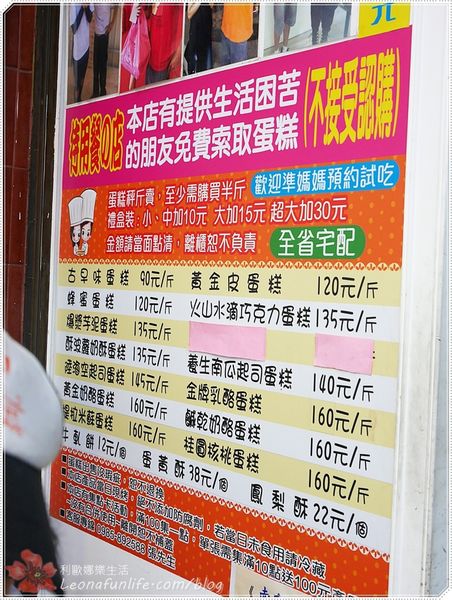 元
待用餐の店
本店有提供生活困苦
的朋友免費索取蛋糕
(不接受認購)
蛋糕秤斤賣，至少需購買半斤
歡迎準媽媽預約試吃
禮盒裝：小、中加10元 大加15元 超大加30元
金額請當面點清，離櫃恕不負責
全省宅配
古早味蛋糕 90元/斤 黃金皮蛋糕 120元/斤
蜂蜜蛋糕 120元/斤 火山水滴巧克力蛋糕 135元/斤
爆漿芋泥蛋糕 135元/斤
酥波蘿奶酥蛋糕 135元/斤 養生南瓜起司蛋糕 140元/斤
挖空起司蛋糕 145元/斤 金牌乳酪蛋糕 160元/斤
黃金奶酪蛋糕 160元/斤 鹹乾奶酪蛋糕 160元/斤
提拉米蘇蛋糕 160元/斤 桂圓核桃蛋糕 160元/斤
牛軋餅 12元/個 蛋黃酥 38元/個 鳳梨酥 22元/個
■蛋糕出售後瑕疵，恕不退換
■本店產品當日現烤，絕不添加防腐劑，若當日未食用請冷藏
■本店有集點卡活動，滿100集一點，單張需集滿10點送100元產品
離開恕不補蓋
張先生
利歐娜樂生活
Leonafunlife.com/blog